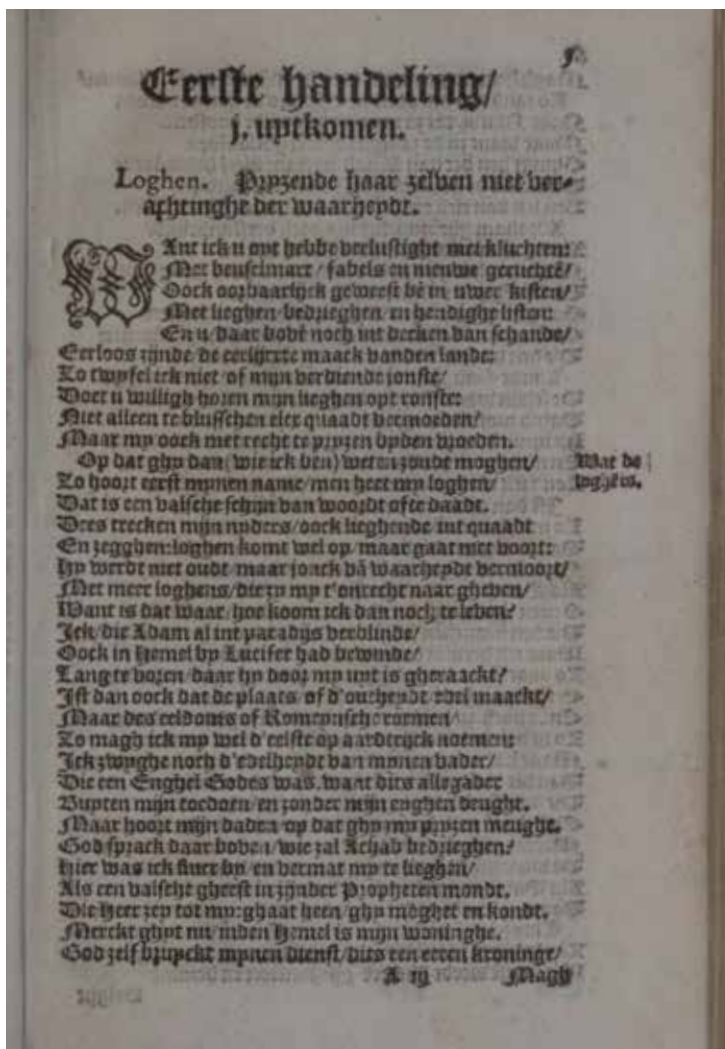 5.
Eerste handeling/
j. uytkomen.
Loghen. Pryzende haar zelven met ver-
achtinghe der waarheydt.
WAnt ick u oyt hebbe verlustight met kluchten:
Met beuselmart / fabels en nieuwe geruchtē/
Oock oorbaarlyck geweest bē in uwer listen/
Met lieghen/bedrieghen/en hendighe listen:
En u/daar bovē noch int decken van schande/
Eerloos zijnde/de eerlijxte maack vanden lande:
Zo twyfel ick niet/of mijn verdiende jonste/
Doet u willigh horen mijn lieghen opt ronste:
Niet alleen te blusschen elcx quaadt vermoeden/
Maar my oock met recht te pryzen byden vroeden.
Op dat ghy dan (wie ick ben) weten zoudt moghen/
Zo hoort eerst mynen name/men heet my loghen/
Dat is een valsche schijn van woordt ofte daadt.
Dees trecken mijn nyders/oock lieghende int quaadt
En zegghen:loghen komt wel op/maar gaat niet voort:
Hy werdt niet oudt/maar jonck vā waarheydt vermoort/
Met meer loghens/die zy my t'onrecht naar gheven/
Want is dat waar/hoe koom ick dan noch te leven?
Ick/die Adam al int paradijs verblinde/
Oock in Hemel by Lucifer had bewinde/
Lang te voren/daar hy door my uyt is gheraackt?
Ist dan oock dat de plaats/of d'outheydt edel maackt/
Maar des eeldoms of Romeynsche vormen/
Zo magh ick my wel d'eelste op aardtryck noemen:
Ick zwyghe noch d'edelheydt van mynen vader/
Die een Enghel Godes was, want dits allegader
Buyten mijn toedoen/en zonder mijn eyghen deught.
Maar hoort mijn daden/op dat ghy my pryzen meught.
God sprack daar boven/wie zal Achab bedrieghen?
Hier was ick fluer by/en vermat my te lieghen/
Als een valsche gheest in zynder Propheten mondt.
Die Heer zey tot my:ghaat heen/ghy moghet en kondt.
Merckt ghyt nu/inden Hemel is mijn woninghe.
God zelf bruyckt mynen dienst/dies een eeren kroninge/
Wat de
logē is.
A iij
Magh